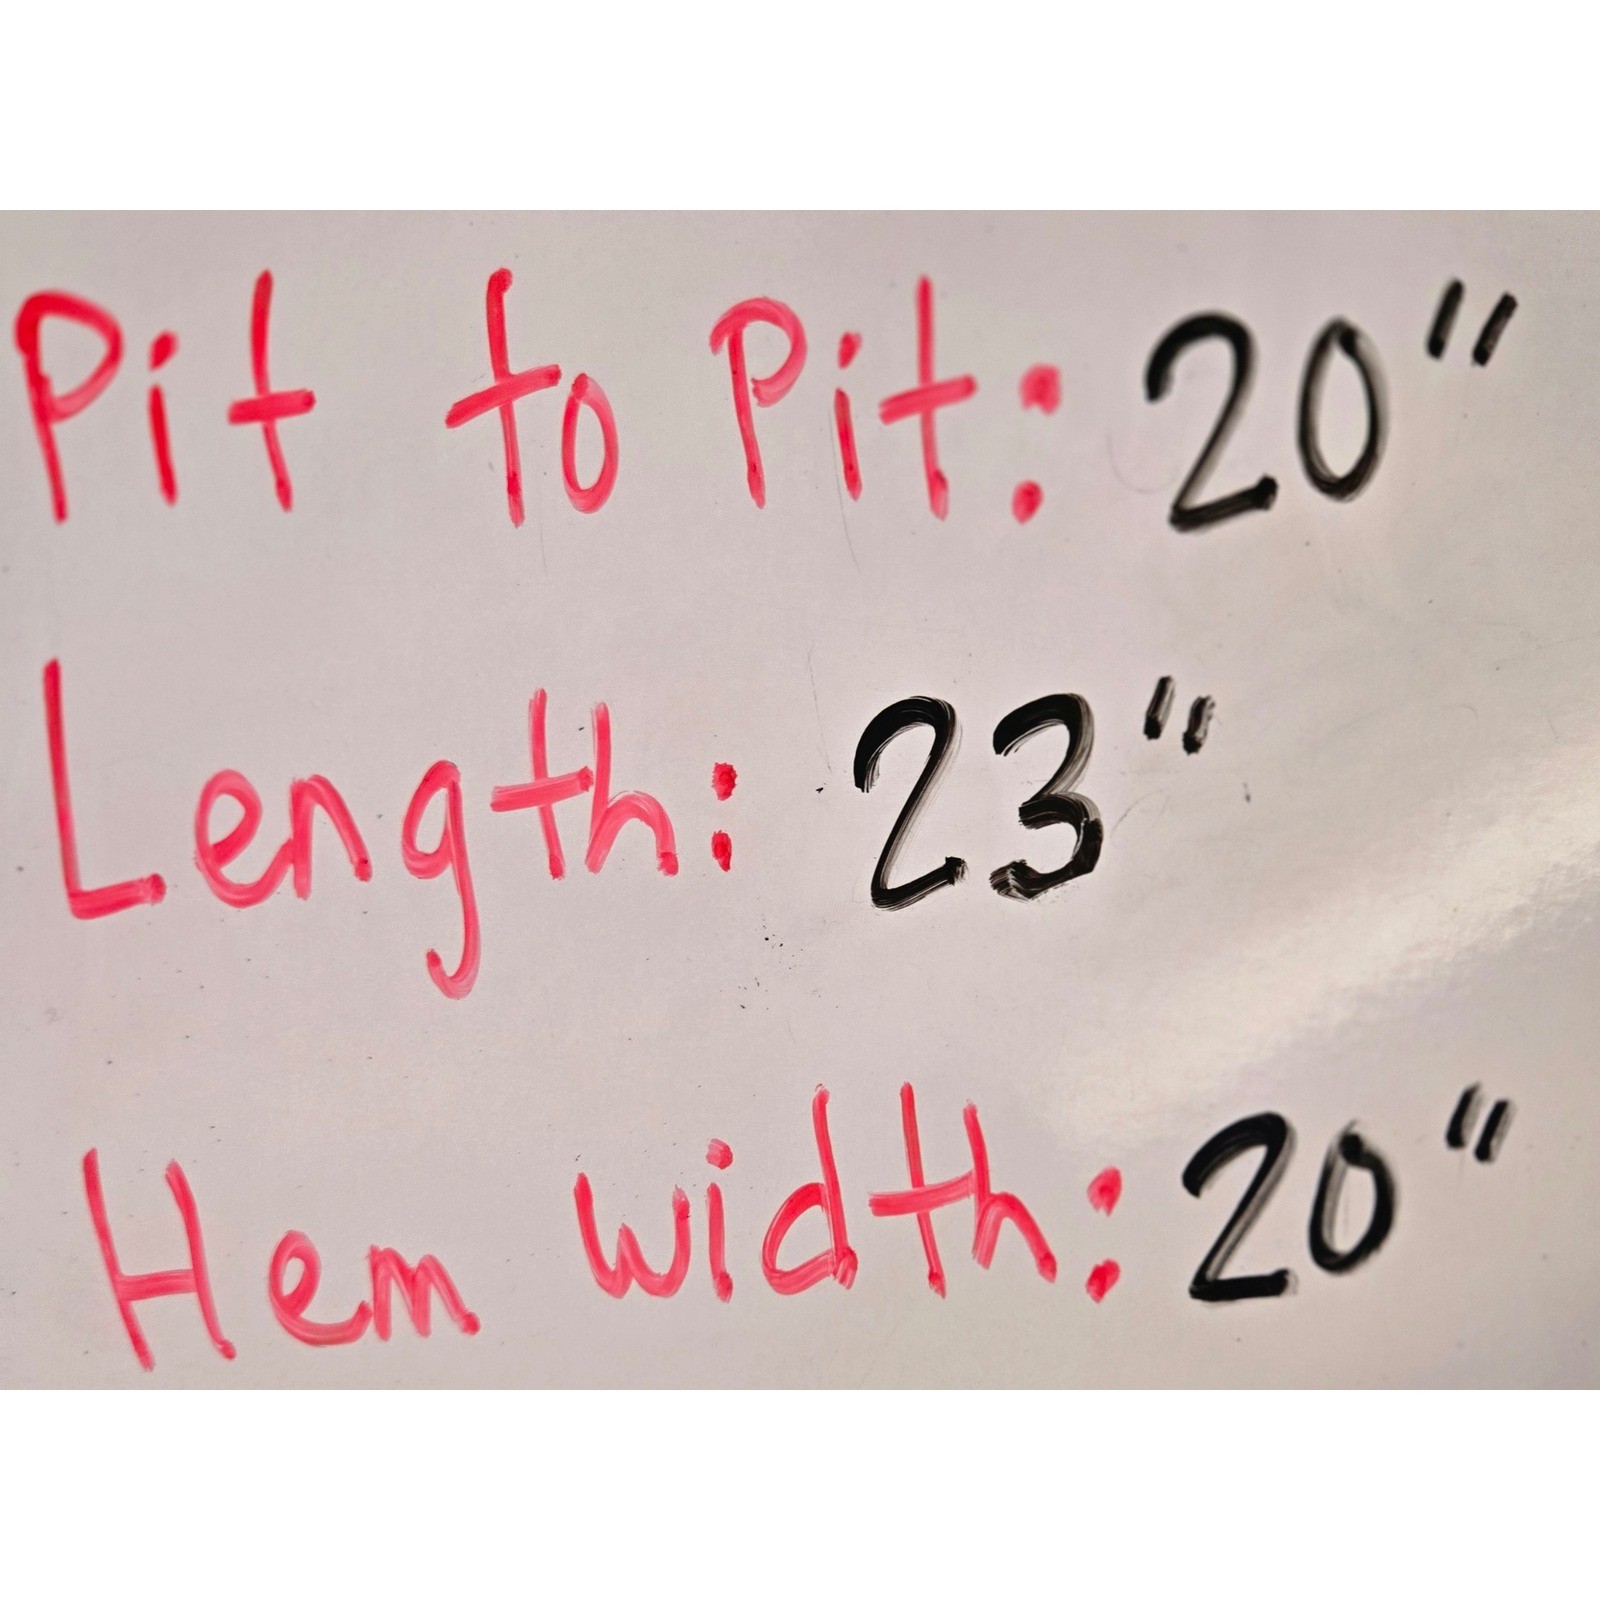 Pit to Pit: 20"
Length: 23"
Hem width: 20"